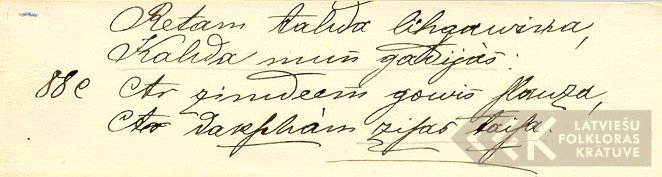 Retam tahda lihgawiņa,
Kahda mun gadijās:
88e Ar zimdeem gowis slauza,
Ar dakshām zisas taisa.
LATVIEŠU
FOLKLORAS
KRĀTUVE